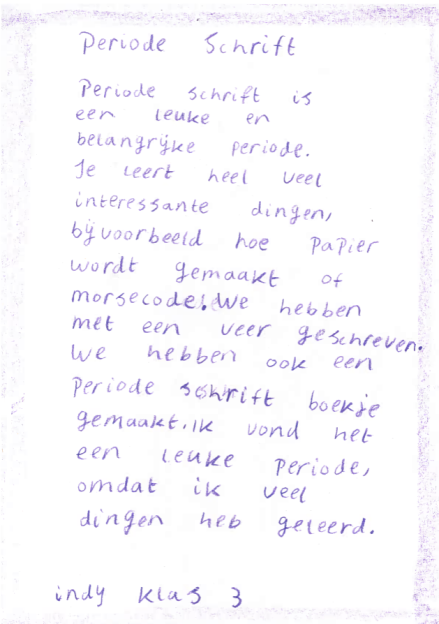 Periode Schrift
Periode schrift is
een leuke en
belangrijke periode.
Je leert heel veel
interessante dingen,
bijvoorbeeld hoe papier
wordt gemaakt of
morsecode!. We hebben
met een veer geschreven.
We hebben ook een
periode schrift boekje
gemaakt. Ik vond het
een leuke periode,
omdat ik veel
dingen heb geleerd.
indy klas 3